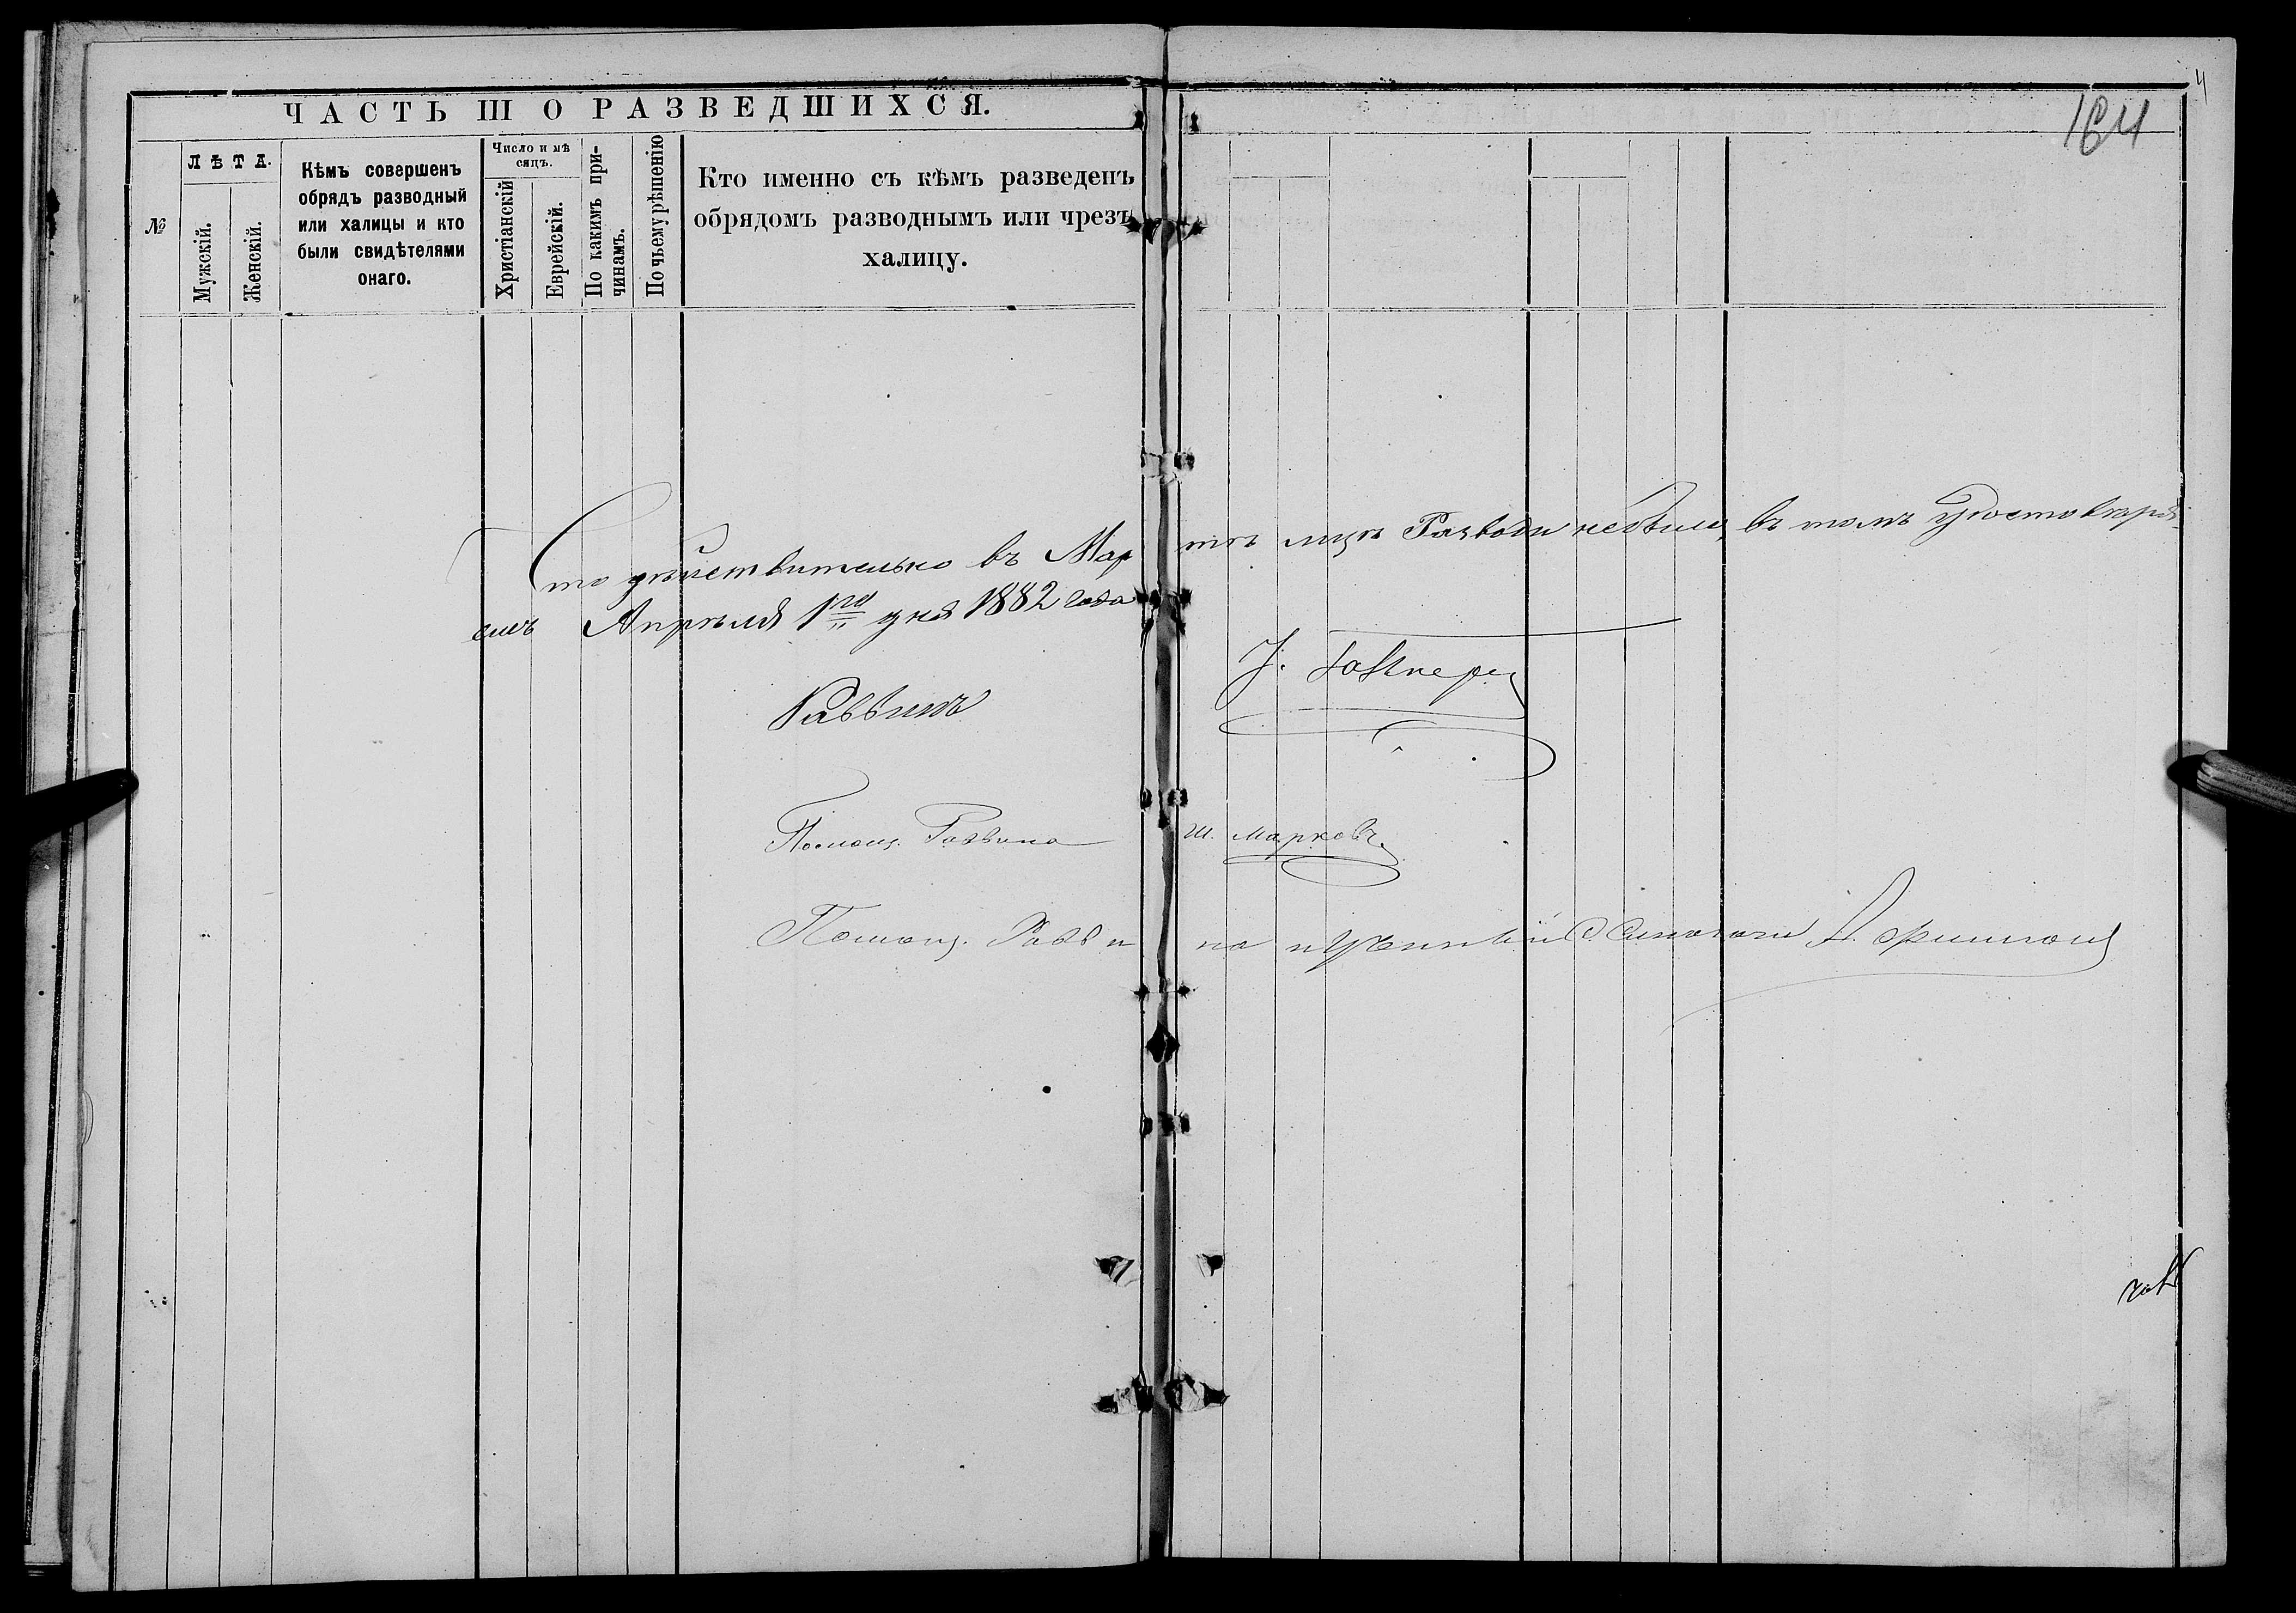 4
164
ЧАСТЬ III О РАЗВЕДШИХСЯ.
№
ЛѢТА.
Мужскій.
Женскій.
Кѣмъ совершенъ
обрядъ разводный
или халицы и кто
были свидѣтелями
онаго.
Число и мѣ
сяцъ.
Христіанскій
Еврейскій.
По какимъ при-
чинамъ.
По чьему рѣшенію
Кто именно съ кѣмъ разведенъ
обрядомъ разводнымъ или чрезъ
халицу.
Что дѣйствительно въ Мартѣ мцѣ Разводи небыли, въ томъ удостовѣря-
емъ Апрѣля 1го дня 1882 года
Раввинъ
Помощ. Раввина Ш. Марковъ
Помощ. Раввина и Ученый Синагоги